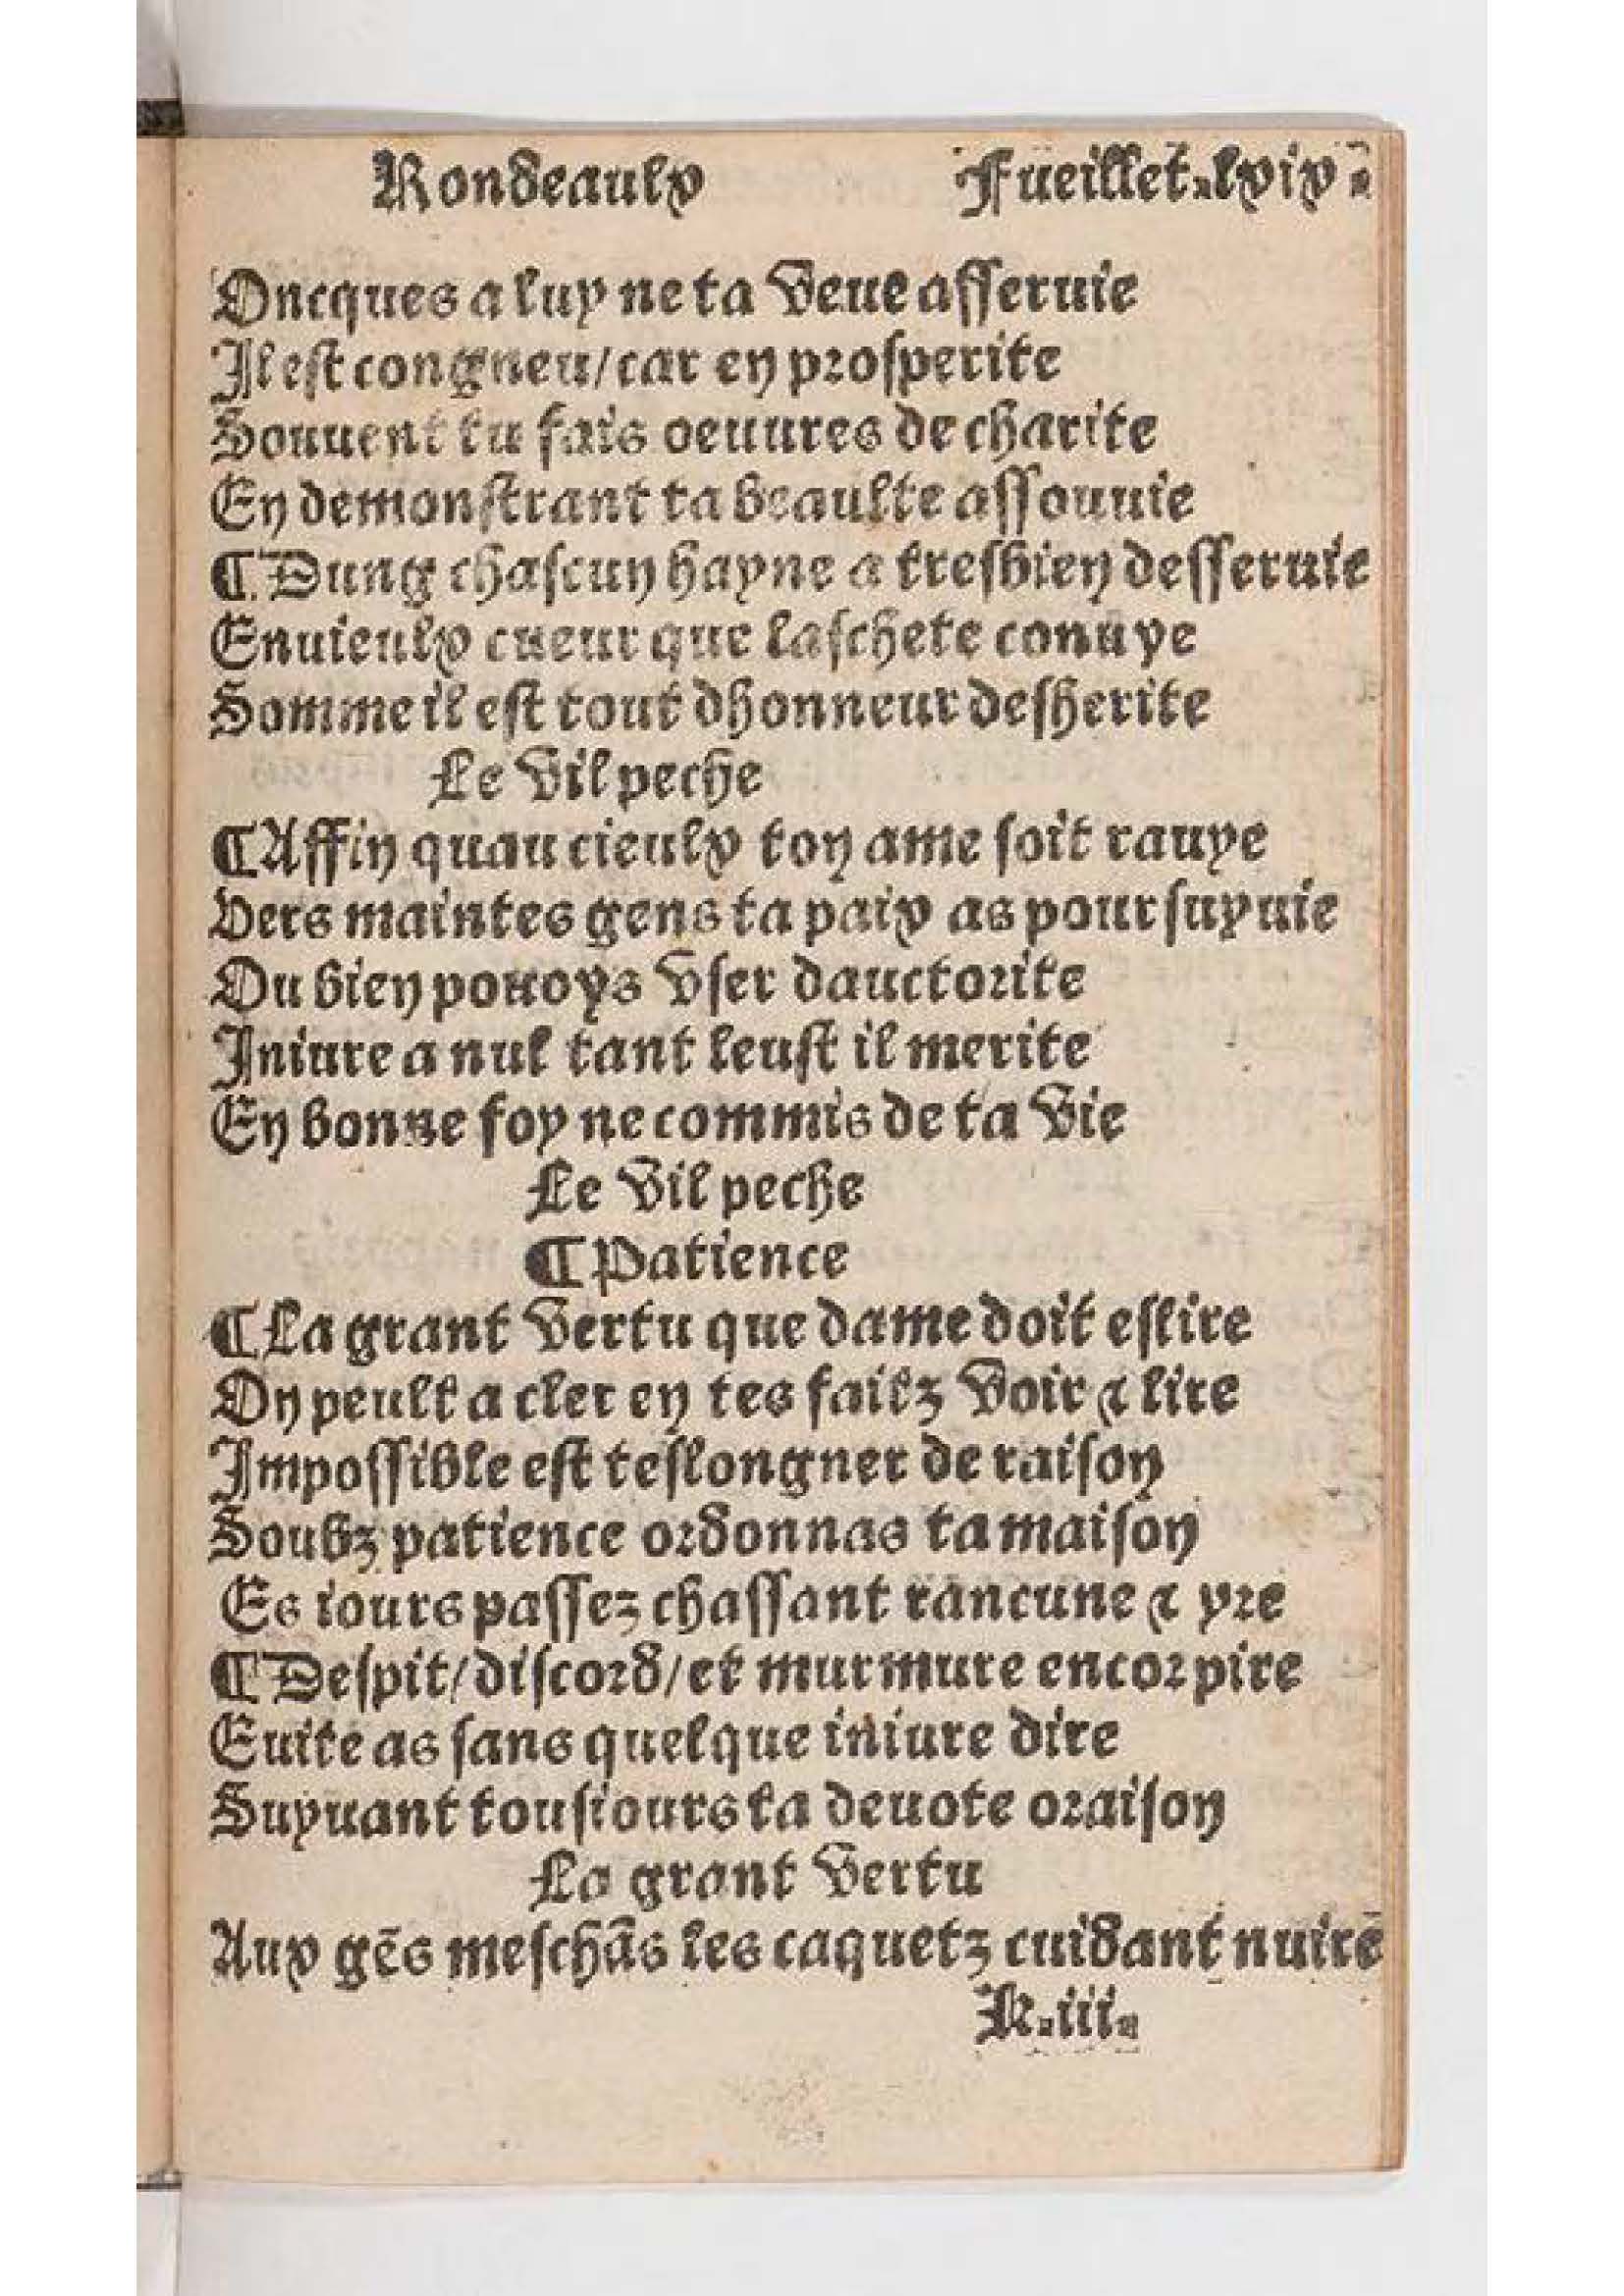 Rondeaulx Fueillet.lxix.
Oncques a luy ne ta veue asseruie
Il est congneu/car en prosperite
Souuent tu fais oeuures de charite
En demonstrant ta beaulte assouuie
¶Dung chascun hayne a tresbien desseruie
Enuieulx cueur que laschete conuye
Somme il est tout dhonneur desherite
Le vil peche
¶Affin quau cieulx ton ame soit rauye
Vers maintes gens ta paix as poursuyuie
Ou bien pouoys vser dauctorite
Iniure a nul tant leust il merite
En bonne foy ne commis de ta vie
Le vil peche
¶Patience
¶La grant vertu que dame doit eslire
On peult a cler en tes failz voir & lire
Impossible est teslongner de raison
Soubz patience ordonnas ta maison
Es iours passez chassant rancune & yre
¶Despit/discord/et murmure encor pire
Euite as sans quelque iniure dire
Suyuant tousiours ta deuote oraison
La grant vertu
Aux gēs meschās les caquetz cuidant nuire
K.iii.